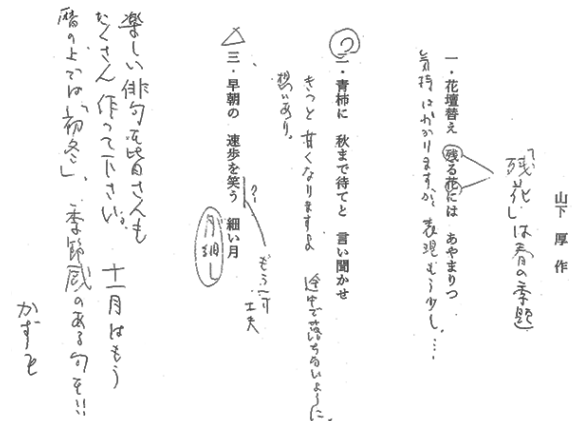 山下 厚 作
一・花壇替え 残る花には あやまりつ
「残花」は春の季題
気持はわかりますが、表現もう少し、…
二・青柿に 秋まで待てと 言い聞かせ
きっと甘くなりますよ 途中で落ちないように、
想いあり。
三・早朝の 速歩を笑う 細い月
?
もう一寸
工夫
月細し
楽しい俳句を皆さんも
たくさん作って下さい。 十一月はもう
暦の上では「初冬」、季節感のある句を!!
かずを